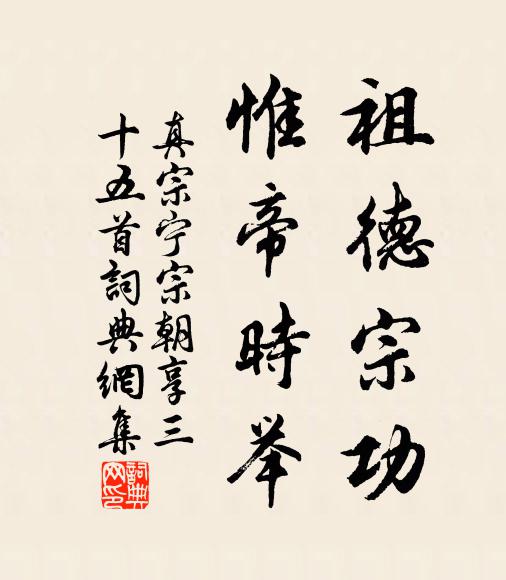 祖德宗功
惟帝時举
真宗宁宗朝享三
十五首詞典網集
詞典网印